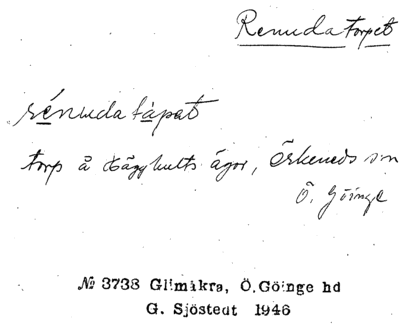 Renuda torpet
rénuda tåpat
torp å Hägghults ägor, Örkeneds sn
Ö. Göinge
№ 3738 Glimåkra, Ö.Göinge hd
G. Sjöstedt 1946